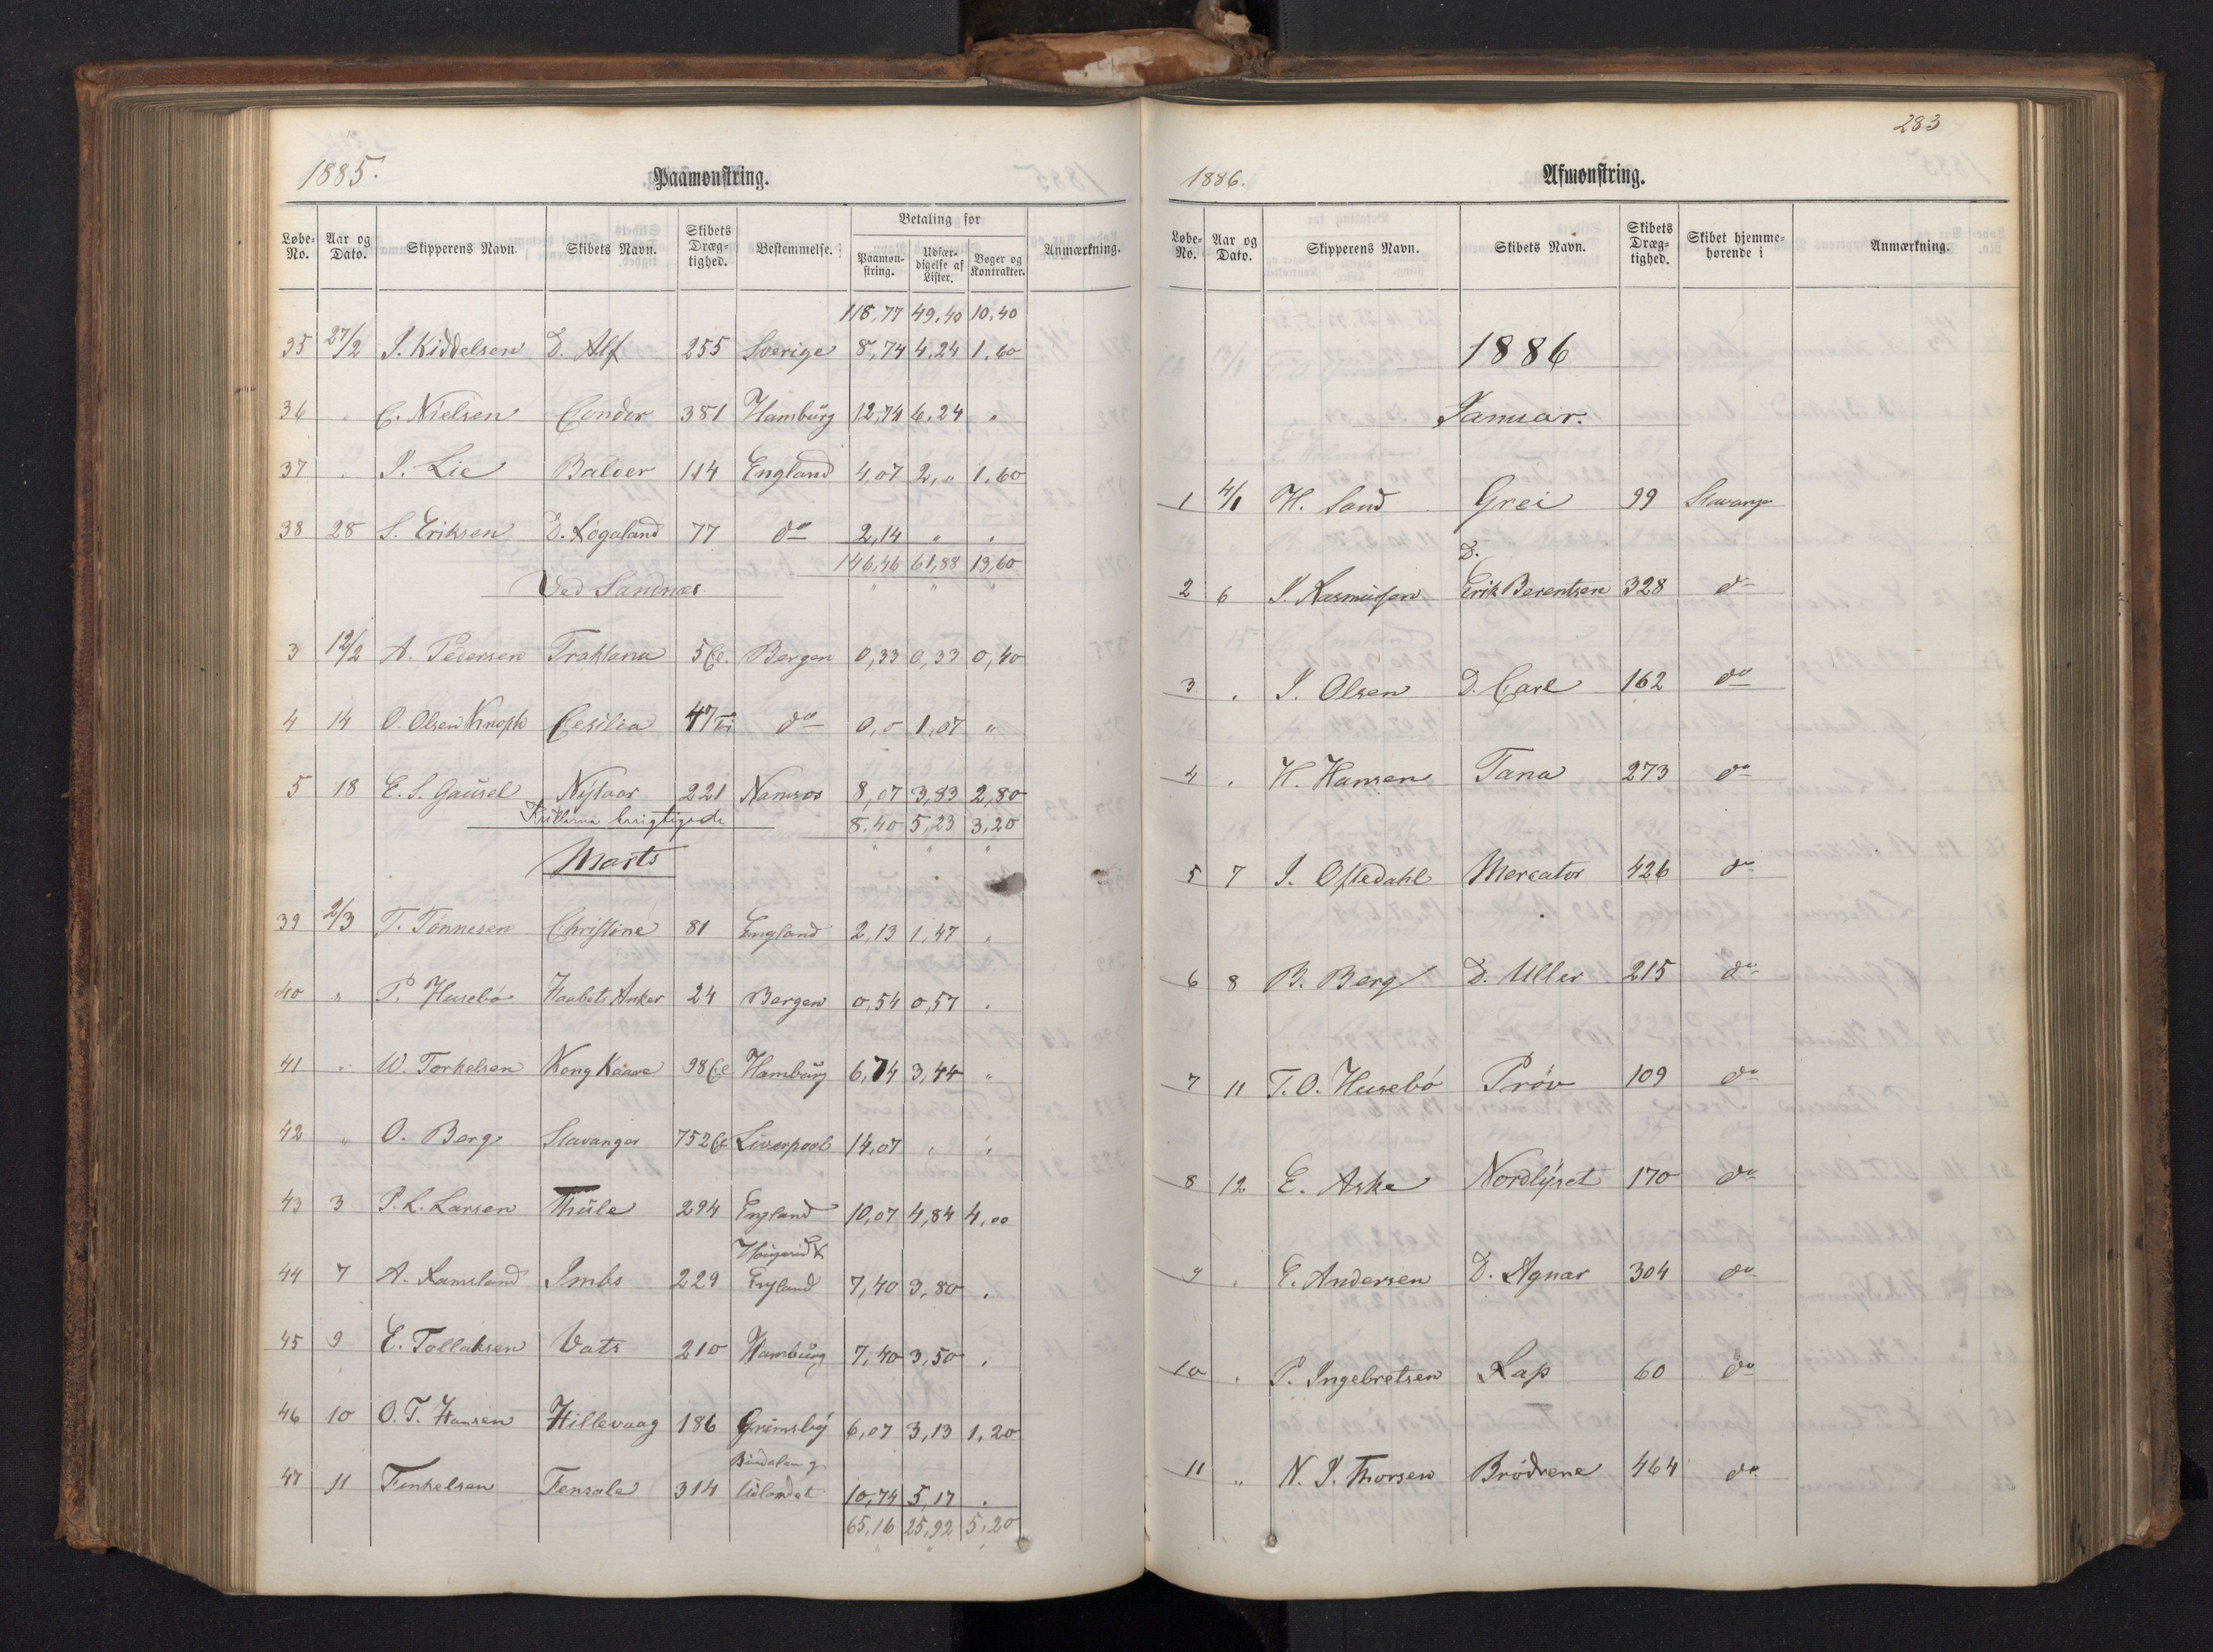 1885.
Paamonstring.
Løbe-No. Aar og Dato. Skipperens Navn. Skibets Navn. Skibets Dræg-tighed. Bestemmelse. Betaling for Paamon-string. Udfær-digelse af Lister. Bøger og Kontrakter. Anmærkning.
118,77 49,40 10,40
35 27/2 I. Kiddelsen D. Alf 255 Sverige 8,74 4,24 1,60
36 " C. Nielsen Condor 381 Hamburg 12,74 6,24 "
37 " I. Lie Balder 114 England 4,07 2," 1,60
38 28 S. Eriksen D. Rogaland 77 do 2,14 " "
146,46 61,88 13,60
Ved Sandnæs
3 12/2 A. Pedersen 5 Cl. Bergen 0,33 0,33 0,40
4 14 O. Olsen Knoph Cesilia 47 do 1,07 "
5 18 E. S. Gausel Nytaar 221 Namsos 8,07 3,83 2,80
8,40 5,23 3,20
Marts
39 2/3 T. Tønnesen Christine 81 England 2,13 1,47 "
40 " P. Husebø Haabets Anker 24 Bergen 0,54 0,57 "
41 " W. Torkelsen Kong Kaare 98 Cl Hamburg 6,74 3,44 "
42 " O. Berg Stavanger 752 Cl Liverpool 14,07 " "
43 3 P. L. Larsen Thule 294 England 10,07 4,84 4,00
44 7 A. Ramsland Imbs 229 England 7,40 3,80 "
45 9 E. Tollaksen Vats 210 Hamburg 7,40 3,50 "
46 10 O. T. Hansen Hillevaag 186 Grimsby 6,07 3,13 1,20
47 11 314 Udlandet 10,74 5,17 "
65,16 25,92 5,20
283
1886.
Afmonstring.
Løbe-No. Aar og Dato. Skipperens Navn. Skibets Navn. Skibets Dræg-tighed. Skibet hjemme-hørende i Anmærkning.
1886
Januar.
1 4/1 H. Sand Grei 99 Stavanger
D.
2 6 I. Rasmussen Erik Berentsen 328 do
3 " I. Olsen D. Carl 162 do
4 " H. Hansen Tana 273 do
5 7 I. Oftedahl Mercator 426 do
6 8 B. Berg D. Uller 215 do
7 11 T. O. Husebø Prøv 109 do
8 12 E. Aske Nordlyset 170 do
9 " E. Andersen D. Agnar 304 do
10 " P. Ingebretsen Rap 60 do
11 " N. I. Thorsen Brødrene 464 do